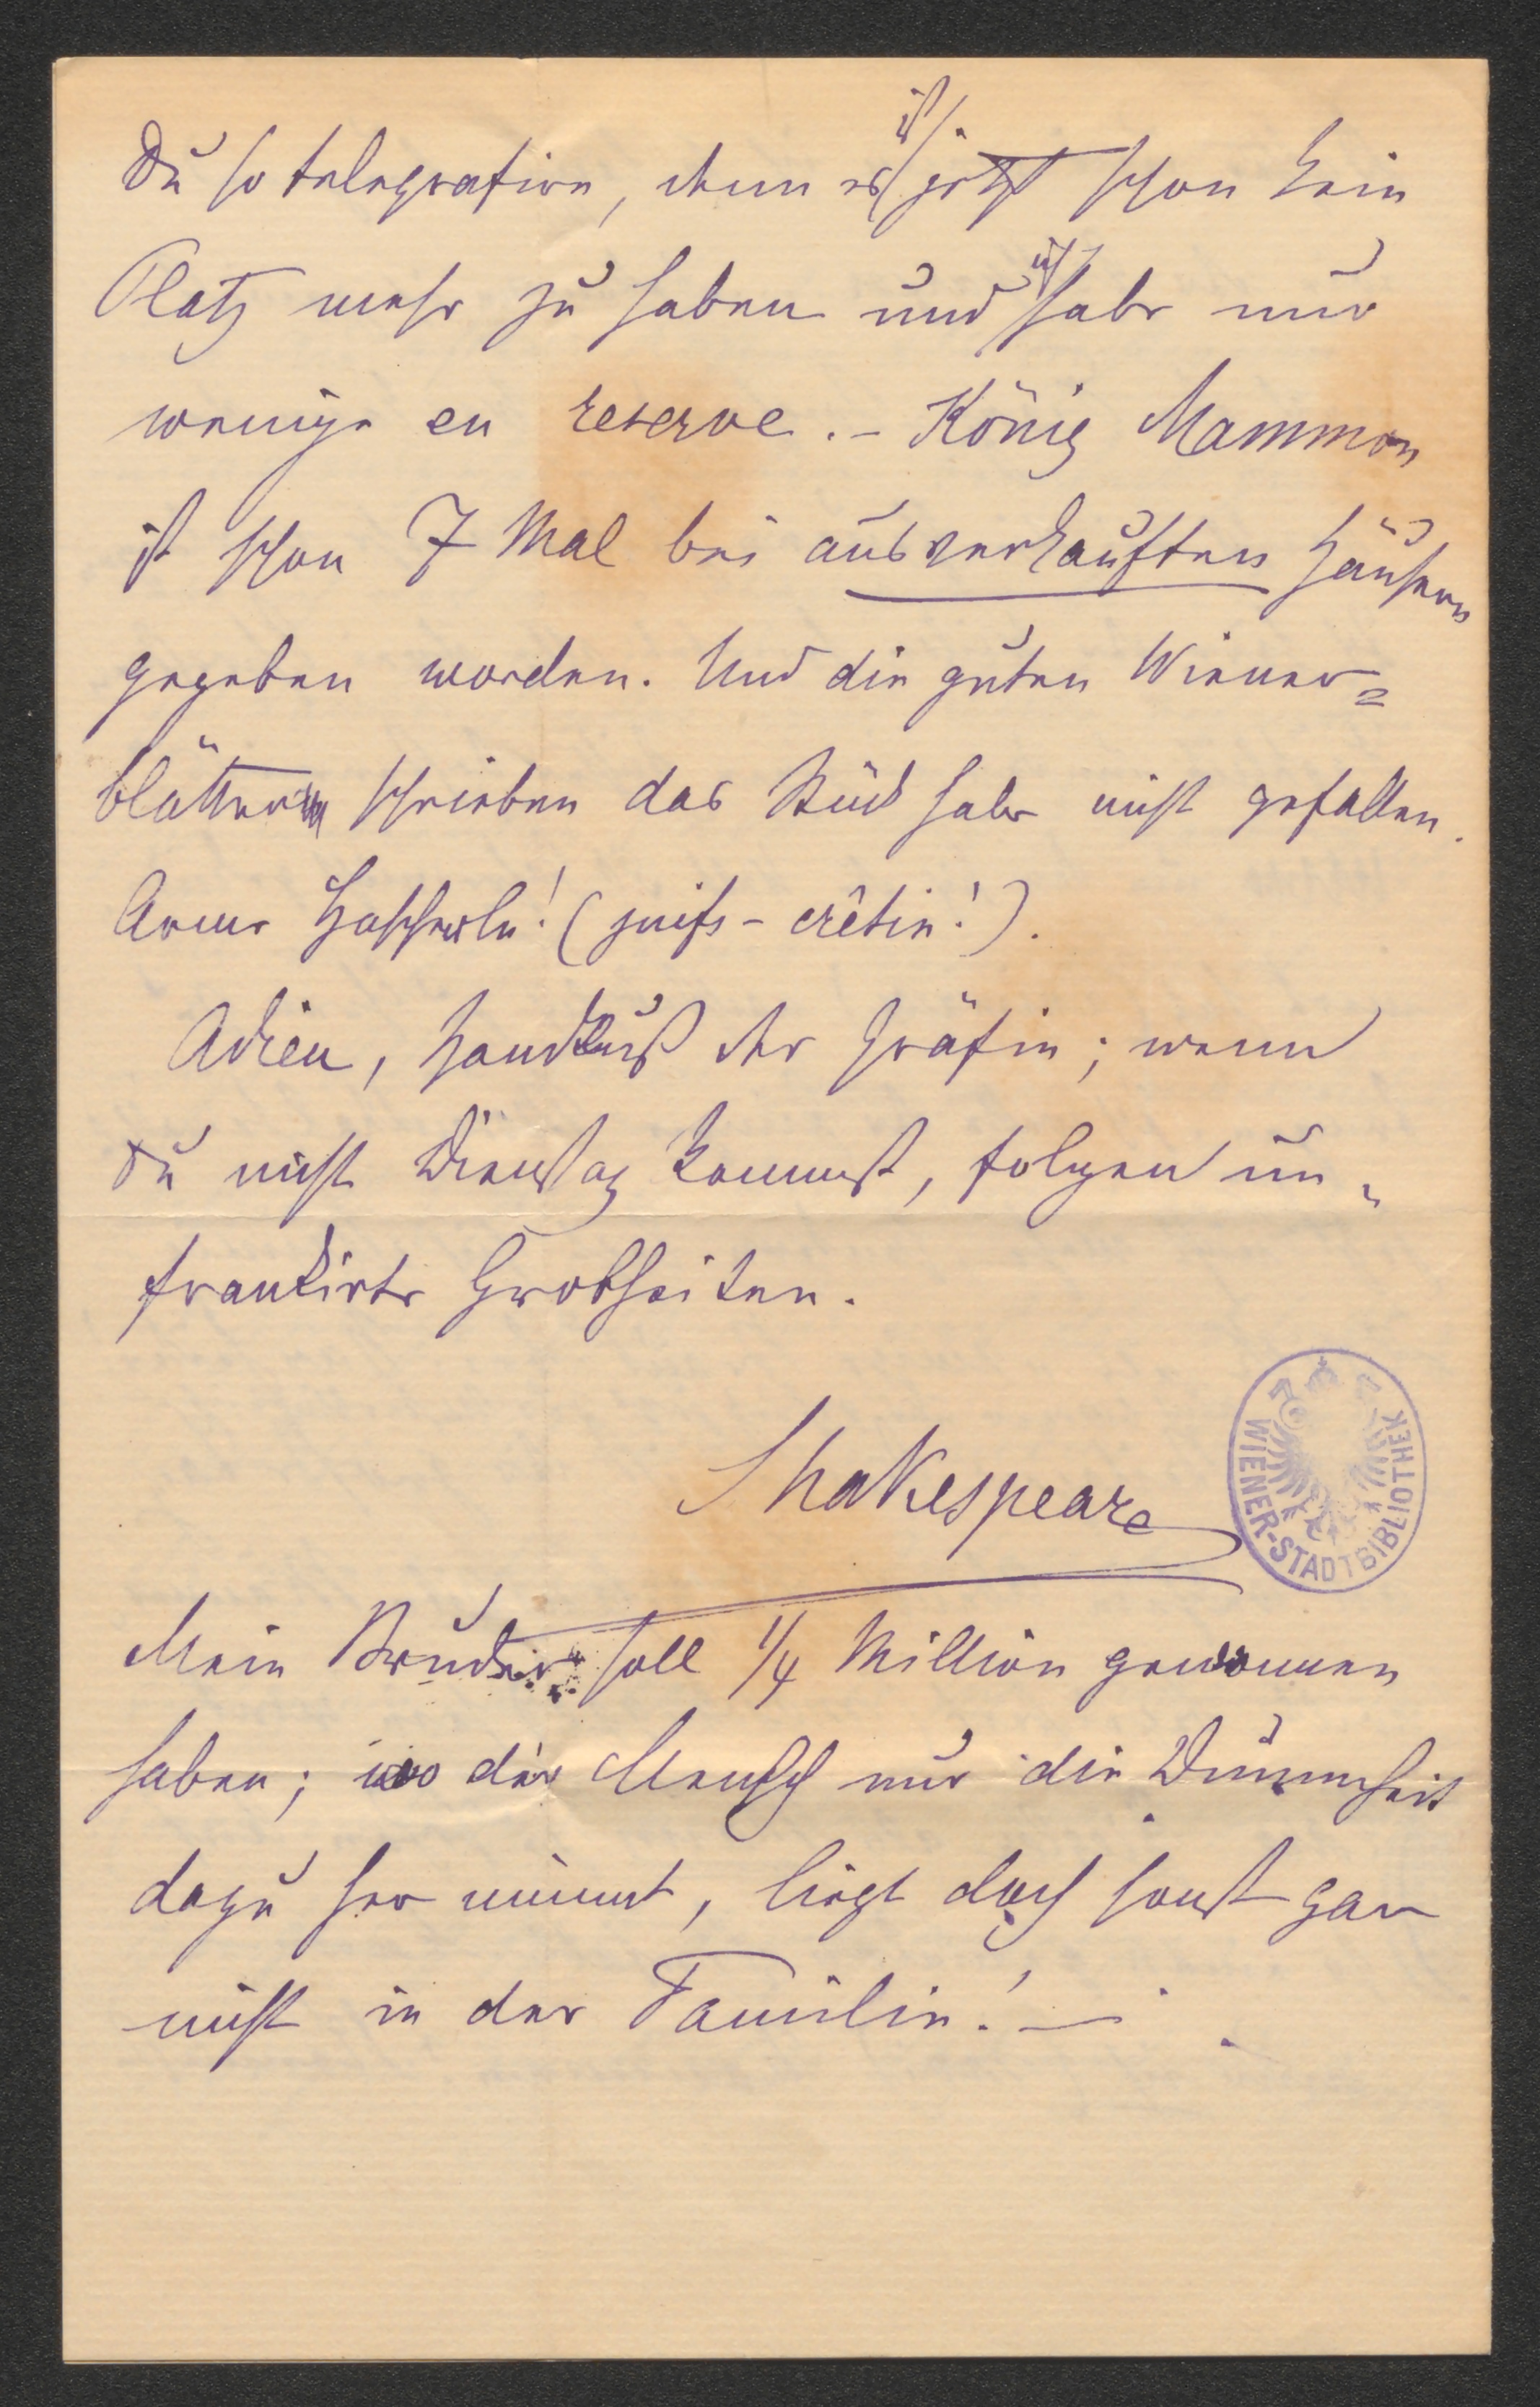 Du so telegrafire, denn es ist jetzt schon kein
Platz mehr zu haben und ich habe nur
wenige en reserve. - König Mammon
ist schon 7 Mal bei ausverkauften Häusern
gegeben worden. Und die guten Wiener=
blätter schrieben das Stück habe nicht gefallen.
Arme Hascherln! (juifs - crêtin!).
Adieu, Handkuß der Gräfin; wenn
Du nicht Dienstag kommst, folgen un-
frankirte Grobheiten.
Shakespeare
WIENER-STADTBIBLIOTHEK
Mein Bruder soll 1/4 Million gewonnen
haben; wo der Mensch nur die Dummheit
dazu her nimmt, liegt doch sonst gar
nicht in der Familie! —